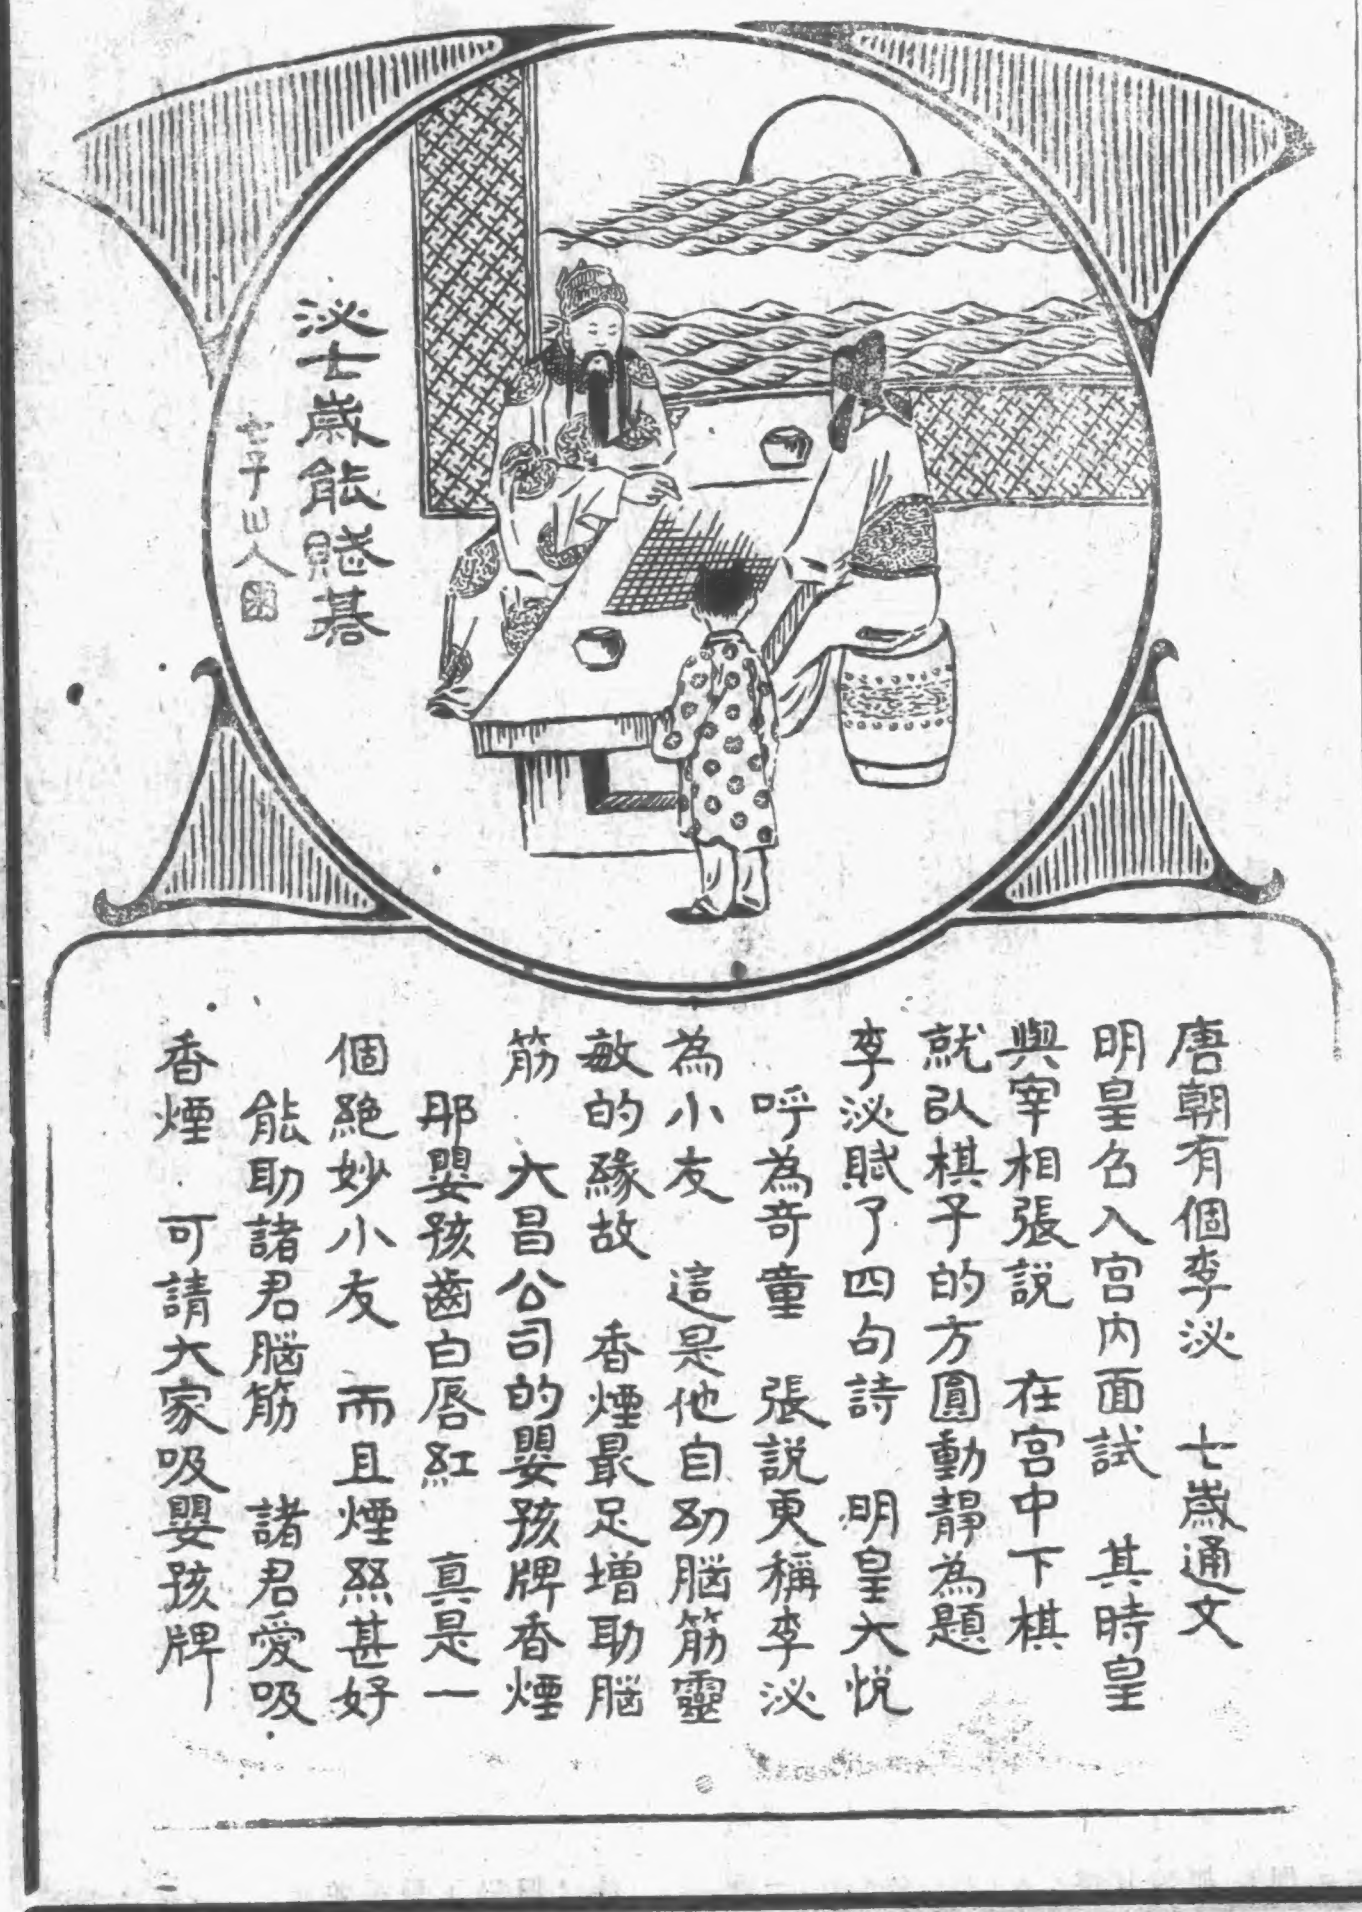 泌七歲能賦碁
七子山人
唐朝有個李泌　七歲通文
明皇召入宮內面試　其時皇
與宰相張説　在宮中下棋
就以棋子的方圓動靜為題
李泌賦了四句詩　明皇大悦
呼為奇童　張説更稱李泌
為小友　這是他自幼腦筋靈
敏的緣故　香煙最足增助腦
筋　大昌公司的嬰孩牌香煙
那嬰孩齒白唇紅　真是一
個絕妙小友　而且煙絲甚好
能助諸君腦筋　諸君愛吸
香煙．可請大家吸嬰孩牌